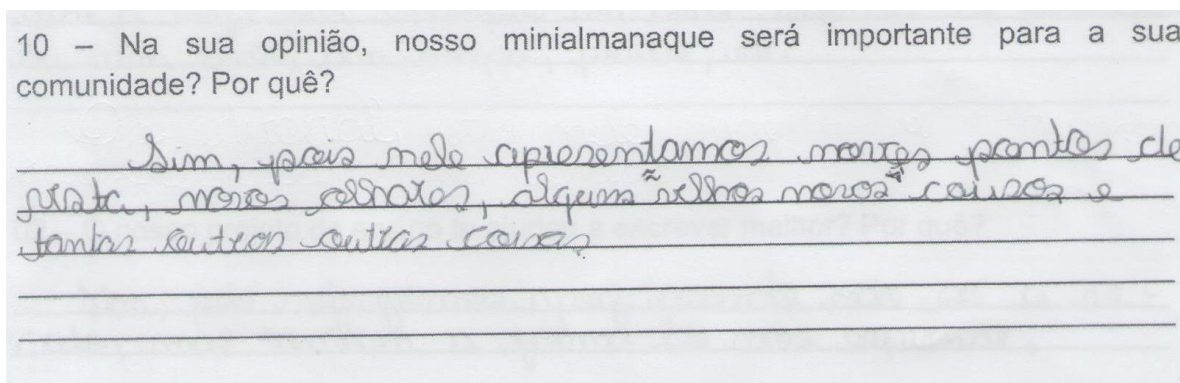 10 – Na sua opinião, nosso minialmanaque será importante para a sua
comunidade? Por quê?
Sim, pois nele apresentamos novos pontos de
vista, novos olhares, alguns "velhos novos" causos e
tantas outras outras coisas.